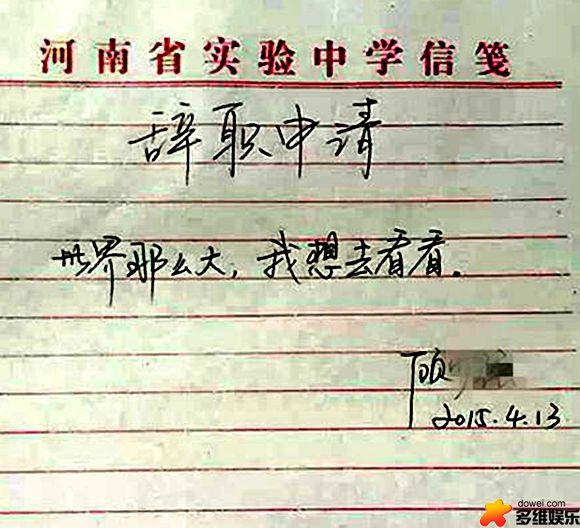 河南省实验中学信笺
辞职申请
世界那么大，我想去看看。
顾
2015.4.13
dowei.com
多维娱乐